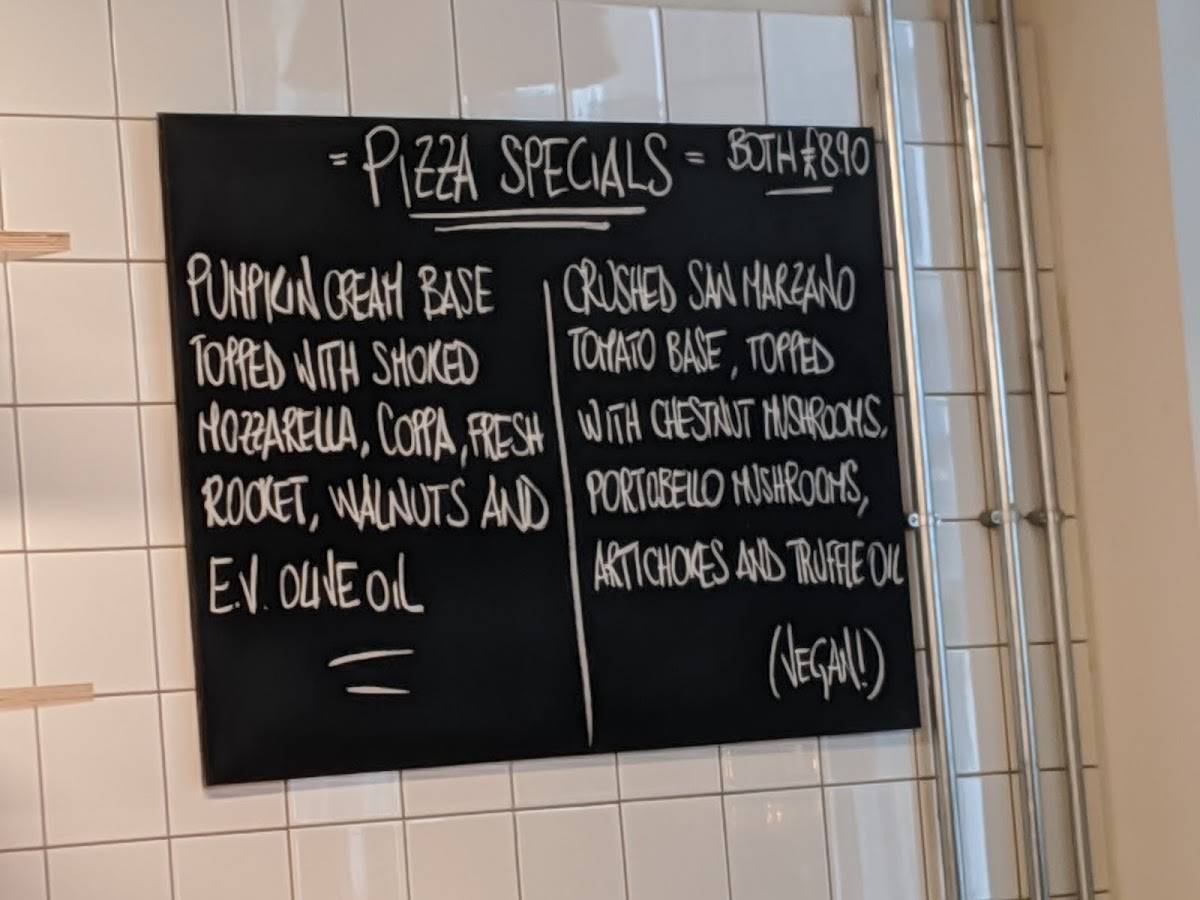 = PIZZA SPECIALS = BOTH £8.90
PUMPKIN CREAM BASE
TOPPED WITH SMOKED
MOZZARELLA, COPPA, FRESH
ROCKET, WALNUTS AND
E.V. OLIVE OIL
CRUSHED SAN MARZANO
TOMATO BASE, TOPPED
WITH CHESTNUT MUSHROOMS,
PORTOBELLO MUSHROOMS,
ARTICHOKES AND TRUFFLE OIL
(VEGAN!)